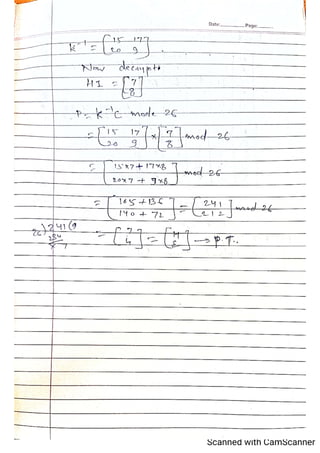 Date: Page:
K⁻¹ = [15 17
20 9]
Now decrypt
HI = [7
8]
P = K⁻¹C mode 26
= [15 17
20 9] × [7
8] mod 26
= [15×7 + 17×8
20×7 + 9×8] mod 26
= [105 + 136
140 + 72] = [241
212] mod 26
26)241(9
234
7
= [7
4] = [H
E] → P.T.
Scanned with CamScanner